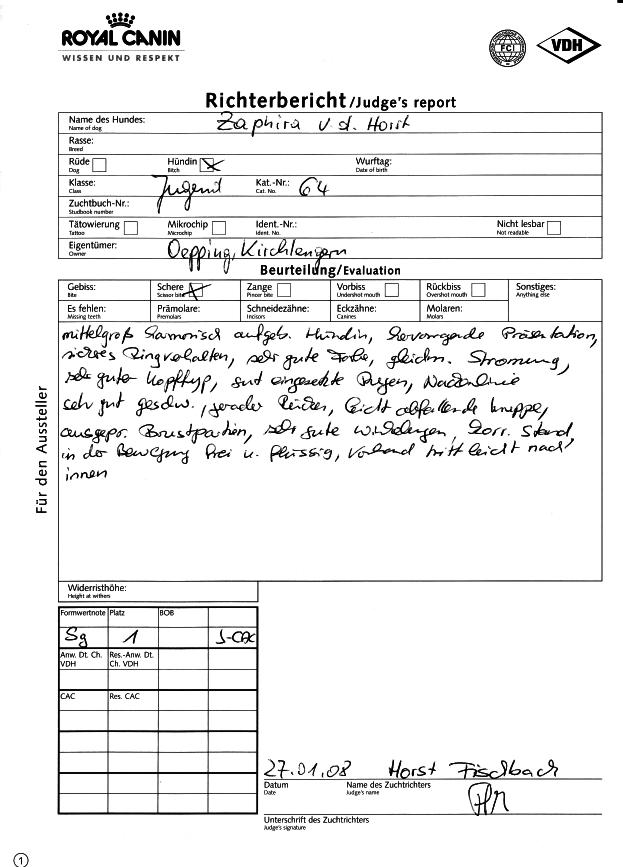 ROYAL CANIN
WISSEN UND RESPEKT
FCI
VDH
Richterbericht/Judge's report
Name des Hundes: Zaphira v. d. Horst
Name of dog
Rasse:
Breed
Rüde Hündin Wurftag:
Dog Bitch Date of birth
Klasse: Jugend Kat.-Nr.: 64
Class Cat. No.
Zuchtbuch-Nr.:
Studbook number
Tätowierung Mikrochip Ident.-Nr.: Nicht lesbar
Tattoo Microchip Ident. No. Not readable
Eigentümer: Oepping, Kirchlengern
Owner
Beurteilung/Evaluation
Gebiss: Schere Zange Vorbiss Rückbiss Sonstiges:
Bite Scissor bite Pincer bite Undershot mouth Overshot mouth Anything else
Es fehlen: Prämolare: Schneidezähne: Eckzähne: Molaren:
Missing teeth Premolars Incisors Canines Molars
mittelgroß harmonisch aufgeb. Hündin, hervorragende Präsentation,
sicheres Ringverhalten, sehr gute Farbe, gleichm. Stromung,
sehr guter Kopftyp, gut eingesetzte Augen, Nackenlinie
sehr gut geschw., gerader Rücken, leicht abfallende Kruppe,
ausgepr. Brustpartien, sehr gute Winkelungen, korr. Stand
in der Bewegung frei u. flüssig, Vorhand tritt leicht nach
innen
Für den Aussteller
Widerristhöhe:
Height at withers
Formwertnote Platz BOB
Sg 1 J-CAC
Anw. Dt. Ch. Res.-Anw. Dt.
VDH Ch. VDH
CAC Res. CAC
27.01.08 Horst Fischbach
Datum Name des Zuchtrichters
Date Judge's name
Unterschrift des Zuchtrichters
Judge's signature
1